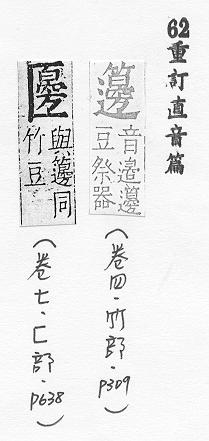 62 重訂直音篇
籩
音邊籩
豆祭器
(卷四·竹部·p309)
與籩同
竹豆
(卷七·匚部·p638)